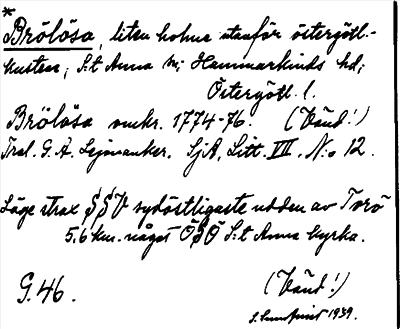 *
Brölösa, liten holme utanför östergötl.-
kusten; S:t Anna sn; Hammarkinds hd;
Östergötl. l.
Brölösa omkr. 1774-76. (Vänd!)
G. A. Lejonanker. SjA, Litt. VII. N:o 12.
Läge strax S S V sydöstligaste udden av Torö
5,6 km. något Ö S Ö S:t Anna kyrka.
G. 46. (Vänd!)
1939.